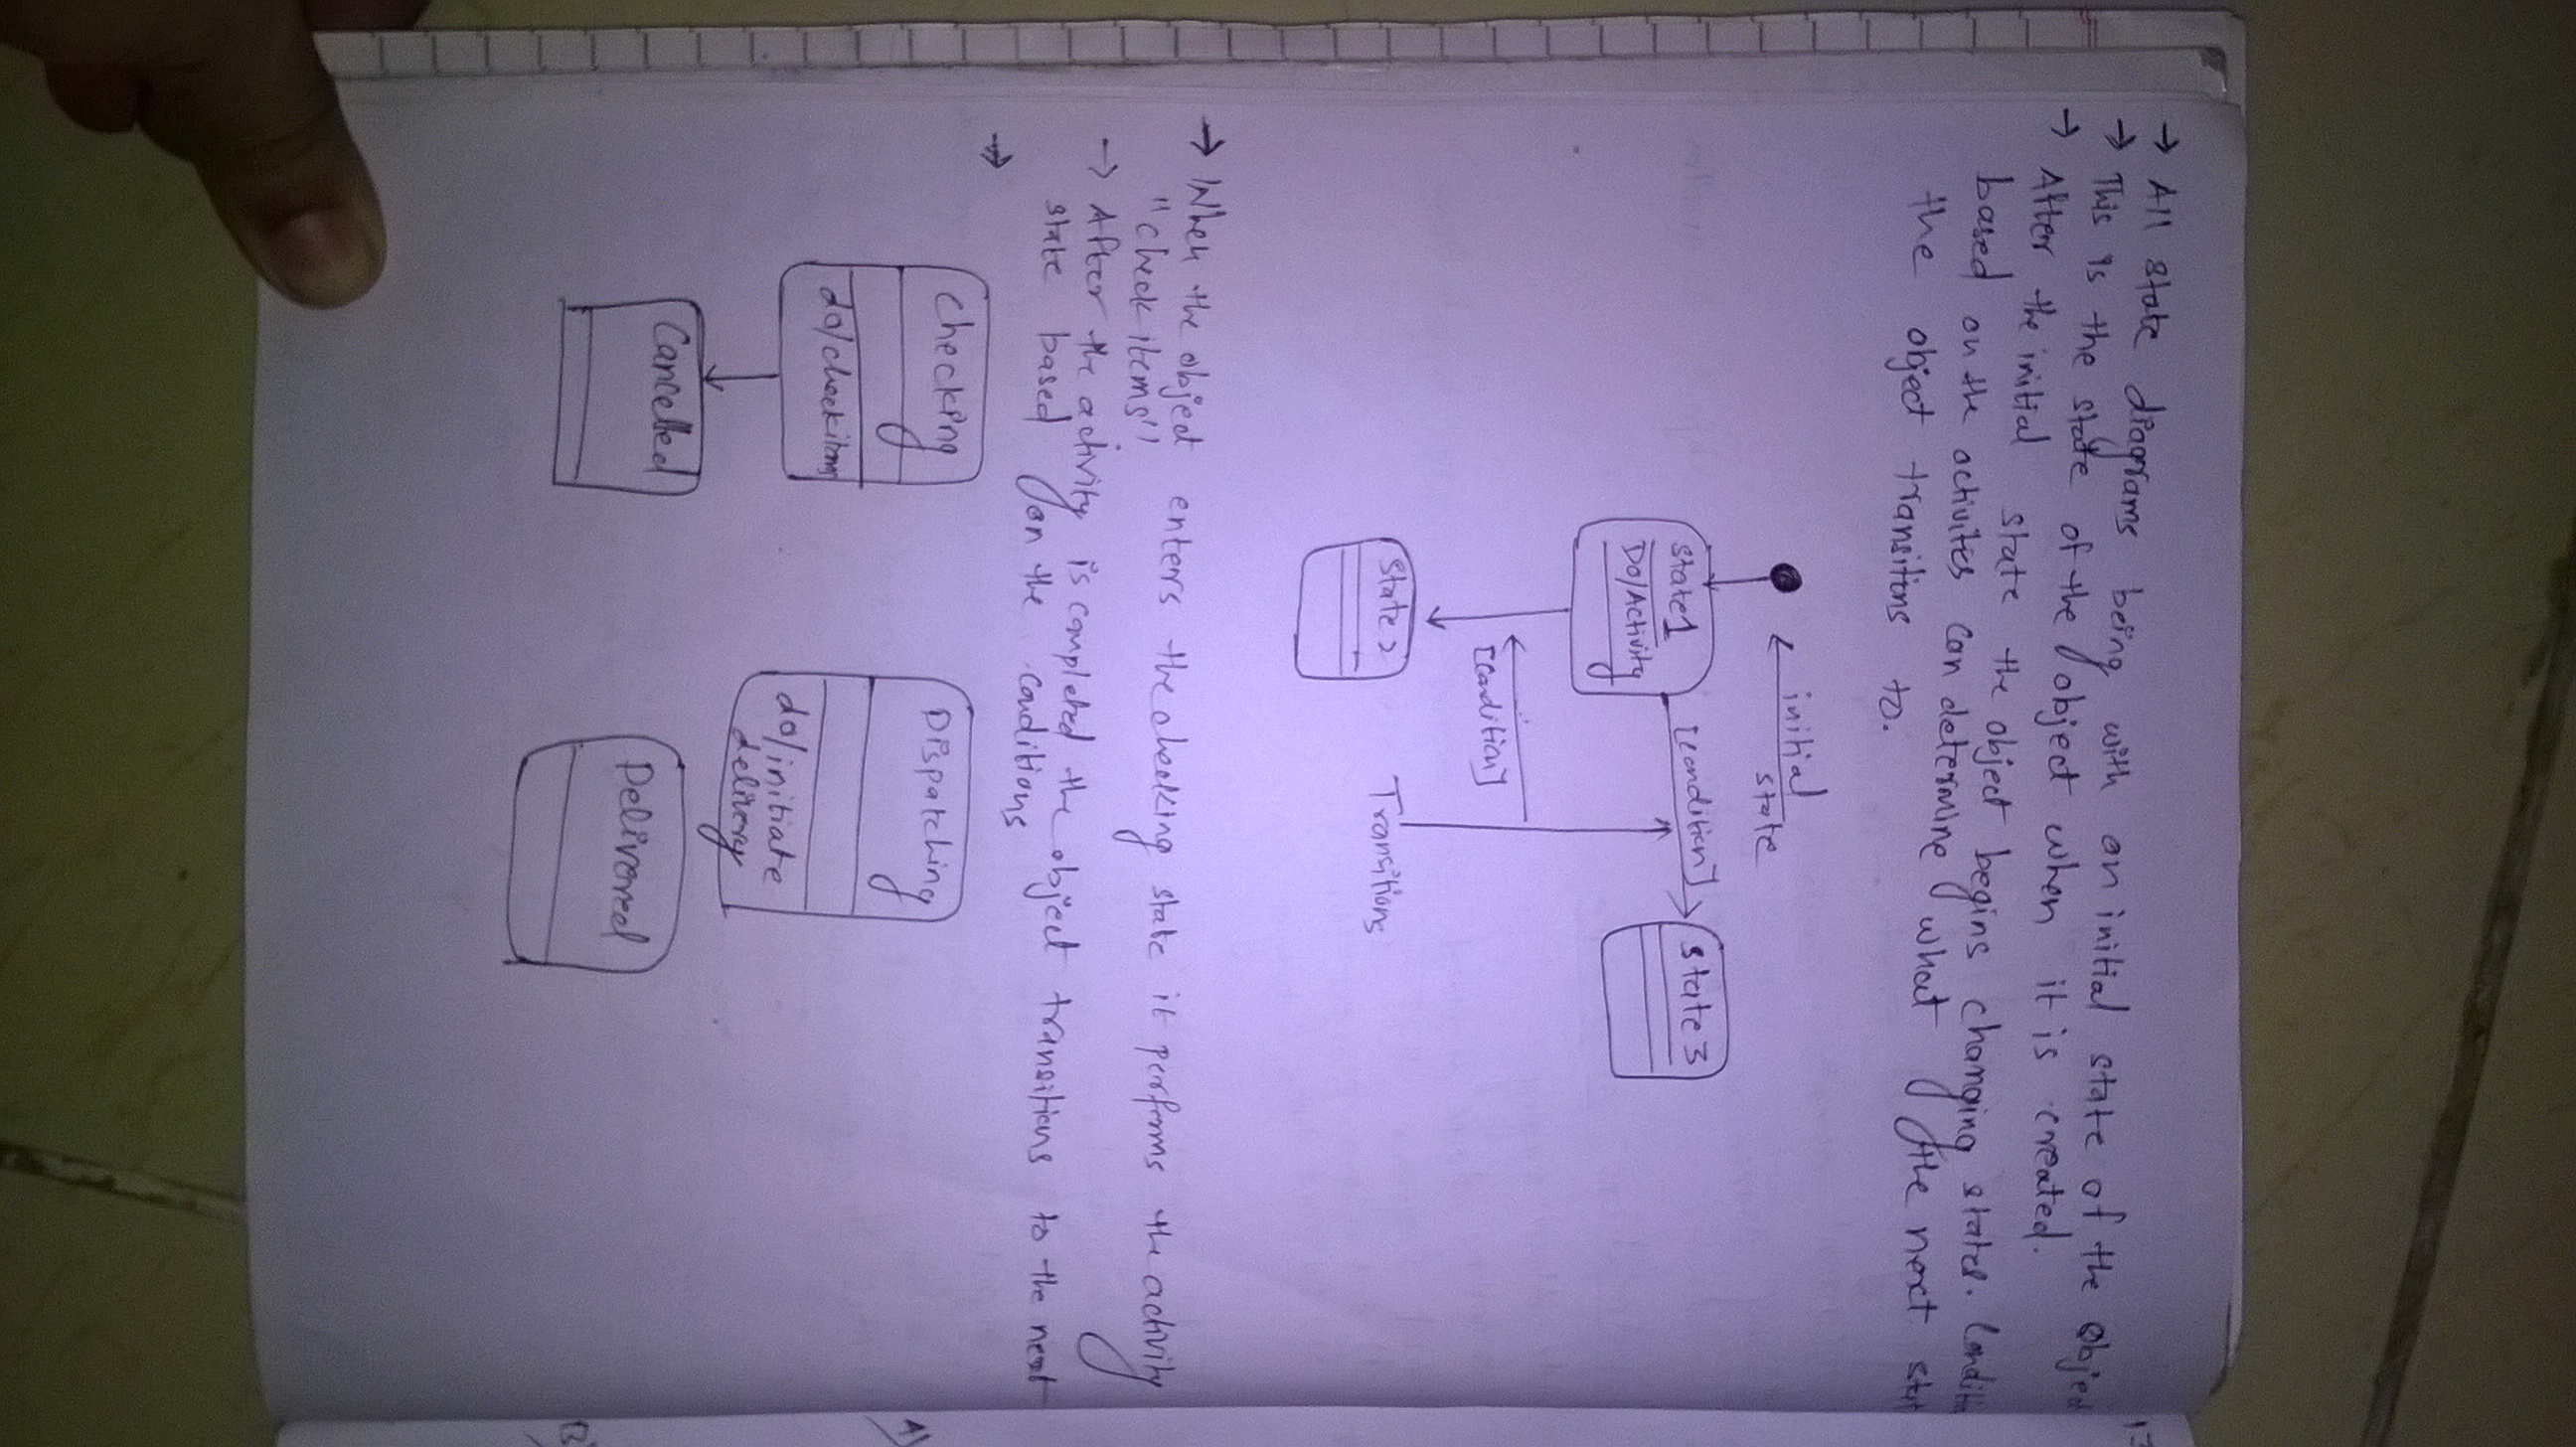 → All state diagrams being with an initial state of the object
→ This is the state of the object when it is created.
→ After the initial state the object begins changing states. Conditio
based on the activities can determine what the next stat
the object transitions to.
initial
state
State1
Do/Activity
[condition]
State 3
[condition]
State 2
Transitions
→ When the object enters the checking state it performs the activity
"check items"
→ After the activity is completed the object transitions to the next
state based on the conditions
→
Checking
do/checkitems
Cancelled
Dispatching
do/initiate
delivery
Delivered
A)